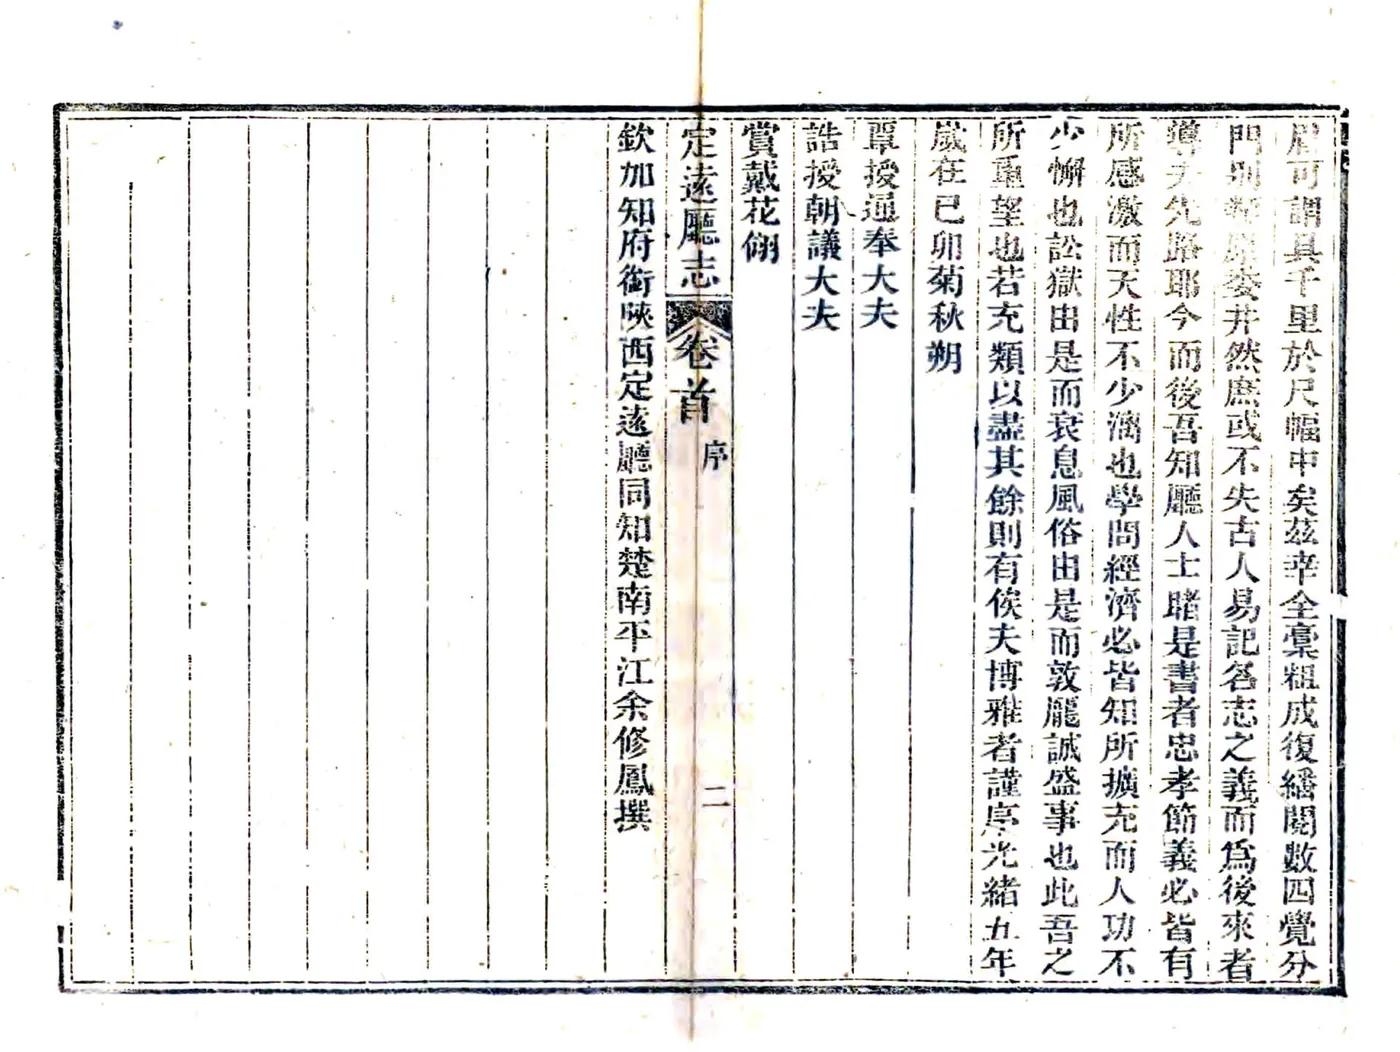 眉可謂具千里於尺幅中矣茲幸全稾粗成復繙閱數四覺分
門別類原委井然庶或不失古人易記名志之義而爲後來者
導夫先路耶今而後吾知廳人士睹是書者忠孝節義必皆有
所感激而天性不少漓也學問經濟必皆知所擴充而人功不
少懈也訟獄由是而衰息風俗由是而敦龐誠盛事也此吾之
所重望也若充類以盡其餘則有俟夫博雅者謹序光緒五年
歲在已卯菊秋朔
覃授通奉大夫
誥授朝議大夫
賞戴花翎
定遠廳志 卷首 序 二
欽加知府銜陝西定遠廳同知楚南平江余修鳳撰